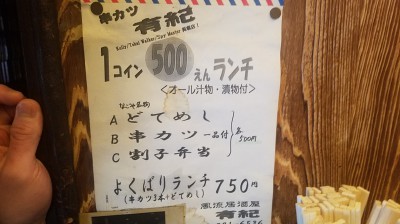 串カツ 有紀
1コイン 500えんランチ
<オール汁物・漬物付>
A どてめし
B 串カツ 一品付
各500円
C 割子弁当
よくばりランチ 750円
(串カツ3本+どてめし)
風流居酒屋
有紀